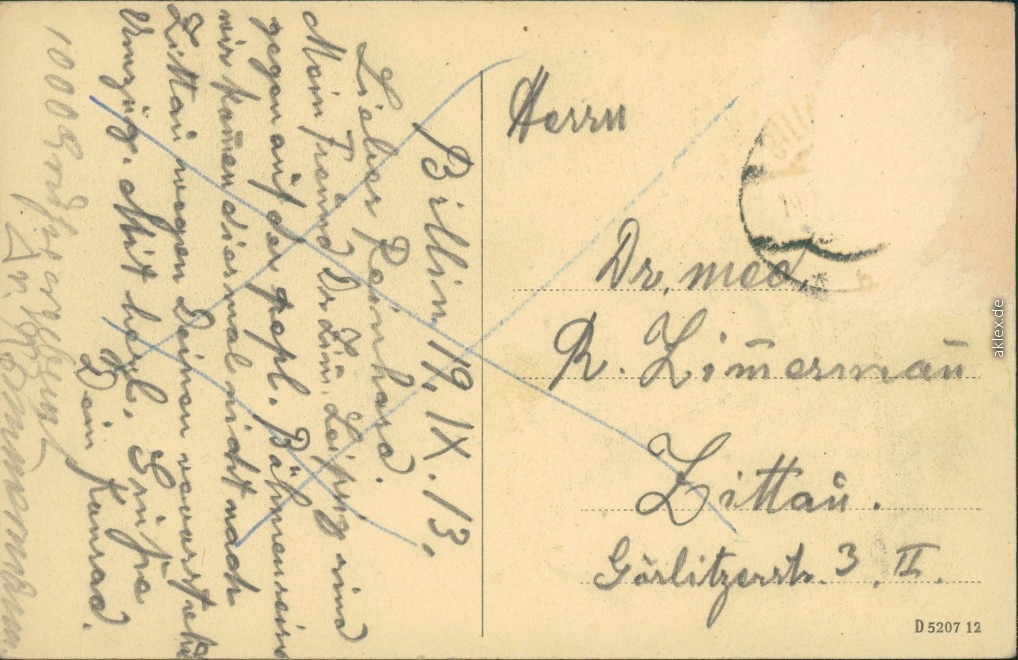 Billin 19. IX. 13.
Lieber Reinhard.
Mein Freund Dr. Zim̄. Leipzig und
gegen auf der gepl. Böhmenreise
wir kom̄en diesmal nicht nach
Zittau wegen Deinen bevorsteh.
Umzug. Mit herzl. Grüße
Dein Konrad.
1000
Dr.
Herrn
Dr. med.
R. Zim̄erman̄
Zittau.
Görlitzerstr. 3. II.
D 5207 12
aklex.de